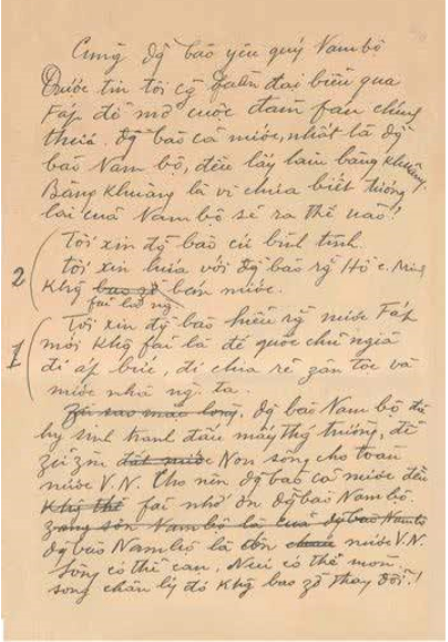 Cùng đg̃ bào yêu quý Nam bộ
Trước tin tôi cg̃ fadn đại biểu qua
Fáp để mở cuộc đàm fán chính
thức. đg̃ bào cả nước, nhất là đg̃
bào Nam bộ, đều lấy làm bâng khuâng.
Bâng khuâng là vì chưa biết tương
lai của Nam bộ sẽ ra thế nào!
Tôi xin đg̃ bào cứ bình tĩnh.
2 Tôi xin hứa với đg̃ bào rg̃ Hồ C. Minh
Khg̃ bao zờ bán nước.
fải là ng.
1 Tôi xin đg̃ bào hiểu rg̃ nước Fáp
mới khg̃ fải là đế quốc chủ nghĩa
đi áp bức, đi chia rẽ zân tộc và
nước nhà ng. ta.
đg̃ bào Nam bộ đã
hy sinh tranh đấu mấy thg̃ trường, để
zữ zìn đất nước Non sông cho toàn
nước V.N. Cho nên đg̃ bào cả nước đều
Khg̃ thể fải nhớ ơn đg̃ bào Nam bộ.
zang sơn Nam bộ là của đg̃ bào Nam bộ
đg̃ bào Nam bộ là dân nước V.N.
Sông có thể cạn, Núi có thể mòn.
song chân lý đó khg̃ bao zờ thay đổi!